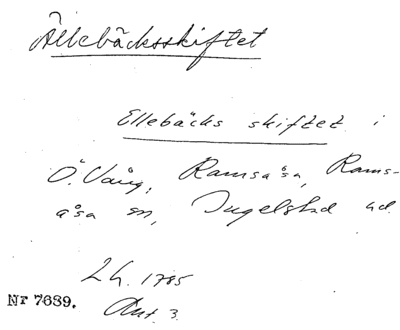 Ällebäcksskiftet
Ellebäcks skiftet i
Ö. Vång, Ramsåsa, Rams-
åsa sn, Ingelstad hd.
L h. 1785
Akt 3.
Nr 7689.